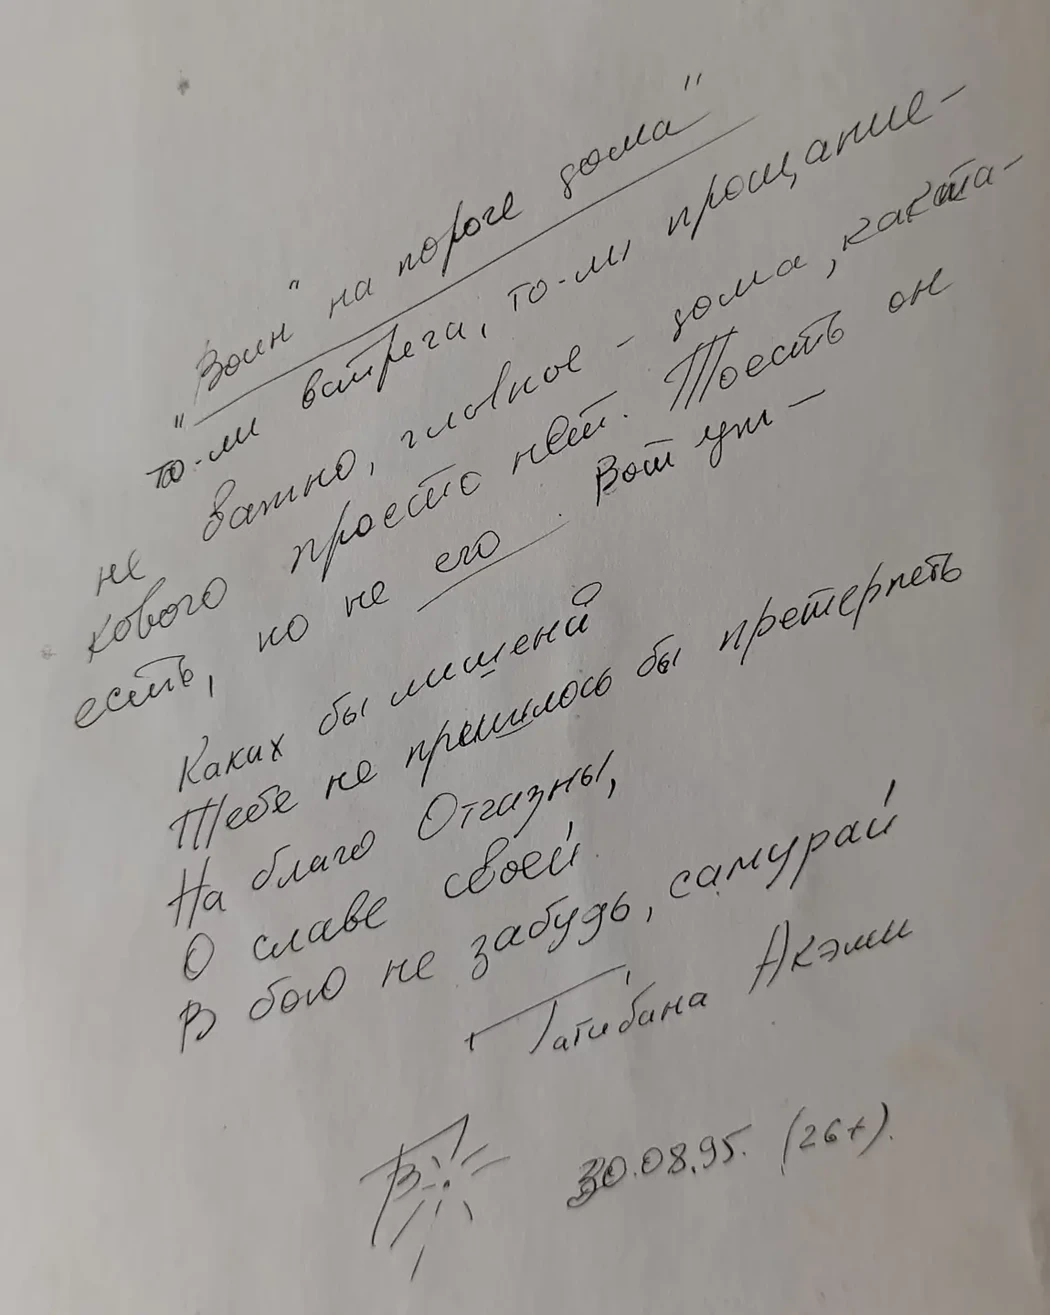 "Воин" на пороге дома"
то-ли встреча, то-ли прощание-
не важно, главное - дома, какта-
кового просто нет. Тоесть он
есть, но не его. Вот ут -
Каких бы лишений
Тебе не пришлось бы претерпеть
На благо Отчизны,
О славе своей
В бою не забудь, самурай
Татибана Акэми
30.08.95. (26+).